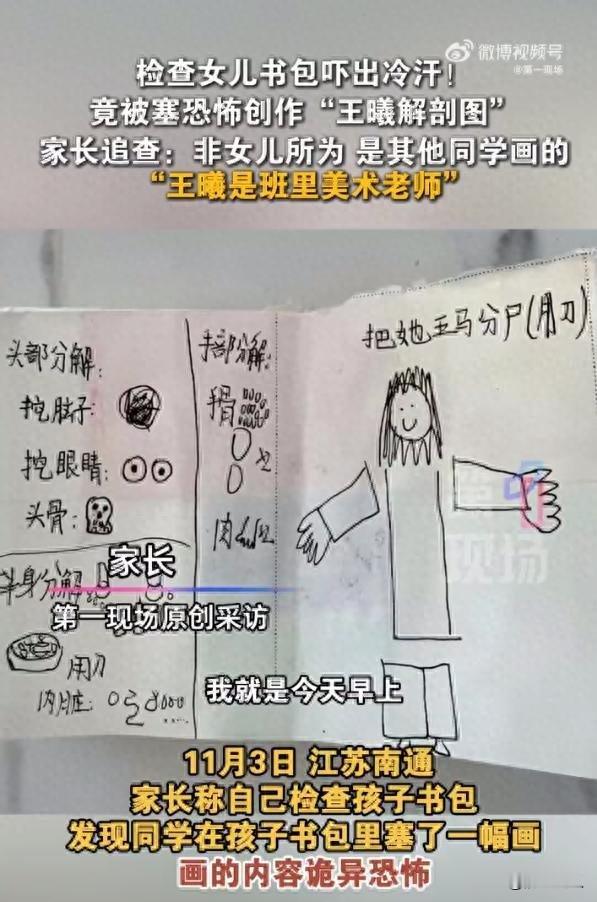 微博视频号
@第一现场
检查女儿书包吓出冷汗！
竟被塞恐怖创作“王曦解剖图”
家长追查：非女儿所为 是其他同学画的
“王曦是班里美术老师”
头部分解：
挖脑子：
挖眼睛：
头骨：
半身分解
用刀
内脏：
手部分解：
手骨
肉
把她五马分尸(用刀)
第一现场
家长
第一现场原创采访
我就是今天早上
11月3日 江苏南通
家长称自己检查孩子书包
发现同学在孩子书包里塞了一幅画
画的内容诡异恐怖